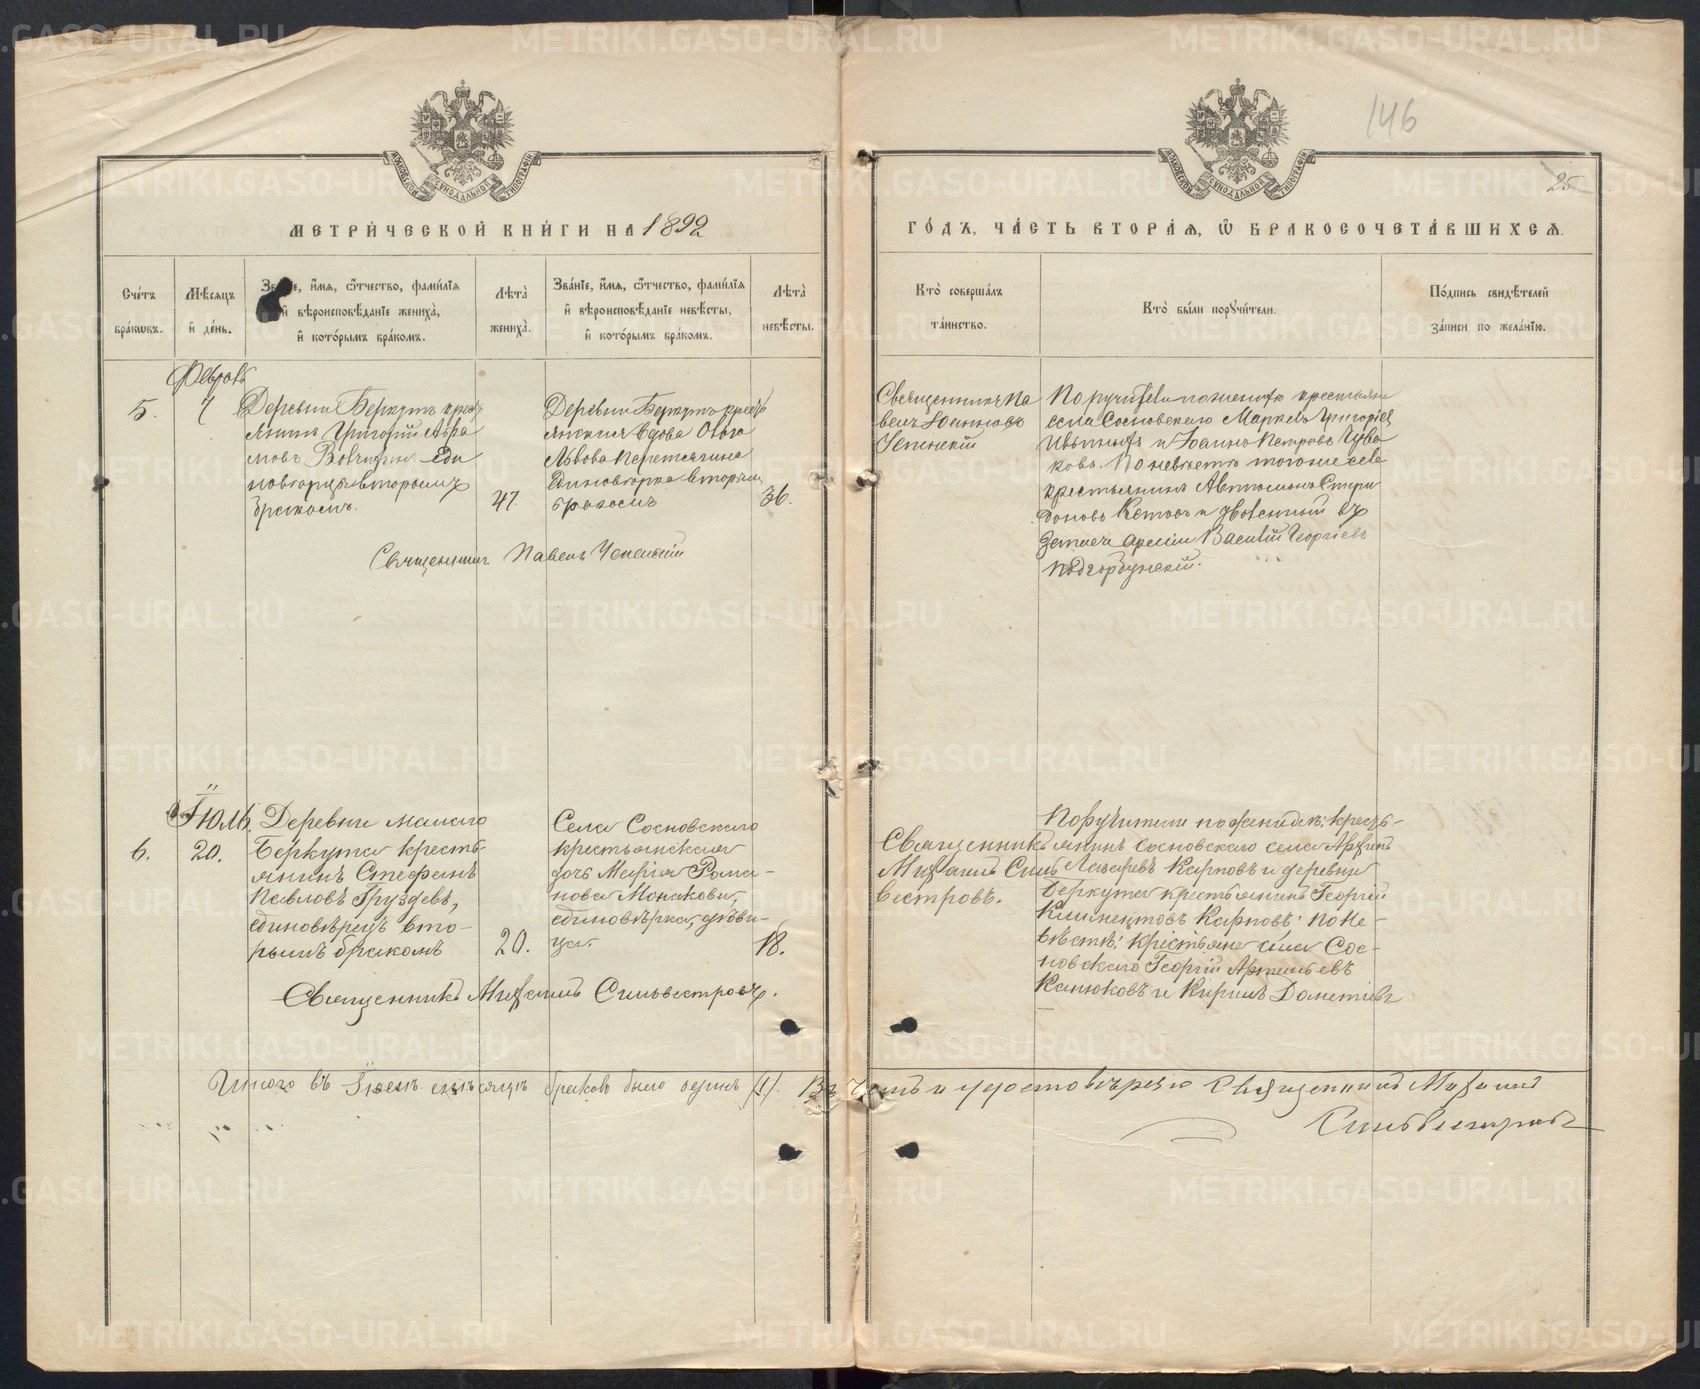 146
25
МЕТРИ́ЧЕСКОЙ КНИ́ГИ НА 1892
ГО́ДЪ, ЧА́СТЬ ВТОРА́Я, Ѽ БРАКОСОЧЕТА́ВШИХСЯ.
Сче́тъ бра́кѡвъ.
Мѣ́сяцъ и҆ де́нь.
Зва́ніе, и҆́мя, ѻ҆́тчество, фами́лія
и҆ вѣроисповѣ́даніе жениха̀,
и҆ кото́рымъ бра́комъ.
Лѣта̀ жениха̀.
Зва́ніе, и҆́мя, ѻ҆́тчество, фами́лія
и҆ вѣроисповѣ́даніе невѣ́сты,
и҆ кото́рымъ бра́комъ.
Лѣта̀ невѣ́сты.
Кто̀ соверша́лъ
та́инство.
Кто̀ бы́ли поручи́тели.
По́дпись свидѣ́телей
за́писи по жела́нію.
Февраль
5.
7
Деревни Беркутъ кресть
янинъ Григорій Авра
мовъ
Еди
новѣрецъ вторымъ
бракомъ.
47
Деревни Беркутъ кресть
янская вдова
Львова
Единовѣрка вторымъ
бракомъ
36.
Священникъ Па
велъ Іоанновъ
Успенскій
Поручители по женихѣ крестьяне
села Сосновскаго Маркелъ Григорьев
и Іоаннъ Петровъ Чува
ковъ. По невѣстѣ тогоже села
крестьянинъ Автомонъ Спири
доновъ
Василій Георгіевъ
Священникъ Павелъ Успенскій
Іюль
6.
20.
Деревни малаго
Беркута кресть
янинъ Стефанъ
Павловъ Груздевъ,
единовѣрецъ вто-
рымъ бракомъ
20.
Села Сосновскаго
крестьянская
дочь Марія Рома-
нова Монакова,
единовѣрка, дѣви-
ца.
18.
Священникъ
Михаилъ Силь
вестровъ.
Поручители по женихѣ: кресть-
янинъ Сосновскаго села
Лазаревъ Карповъ и деревни
Беркута крестьянинъ Георгій
Климентовъ Карповъ; по не-
вѣстѣ: крестьяне села Сос-
новскаго Георгій Артемьевъ
Канюковъ и Кирилъ Дометіевъ
Священникъ Михаилъ Сильвестровъ.
Итого въ Іюлѣ мѣсяцѣ браковъ было одинъ (1). Въ чемъ и удостовѣряю Священникъ Михаилъ
Сильвестровъ
METRIKI.GASO-URAL.RU